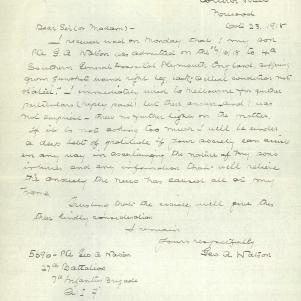 Norwood
Oct. 23. 1918
Dear Sir (or Madam):-
I received word on Monday that my son
Pte G. A. Watson was admitted on the 10/18 to 4th
Southern General Hospital Plymouth England, suffering
from gunshot wound right leg, actual condition not
stated. I immediately wired to Melbourne for further
particulars (reply paid) but their answer, and I was
not surprised - threw no further light on the matter.
If it is not asking too much I will be under
a deep debt of gratitude if your society can assist
in any way in ascertaining the nature of my sons
injuries and any information that will relieve
the anxiety the news has caused all at my
home.
Trusting that the society will give this
their kindly consideration
I remain
Yours respectfully
Geo A Watson
5090 - Pte Geo A Watson
27th Battalion
7th Infantry Brigade
A I F